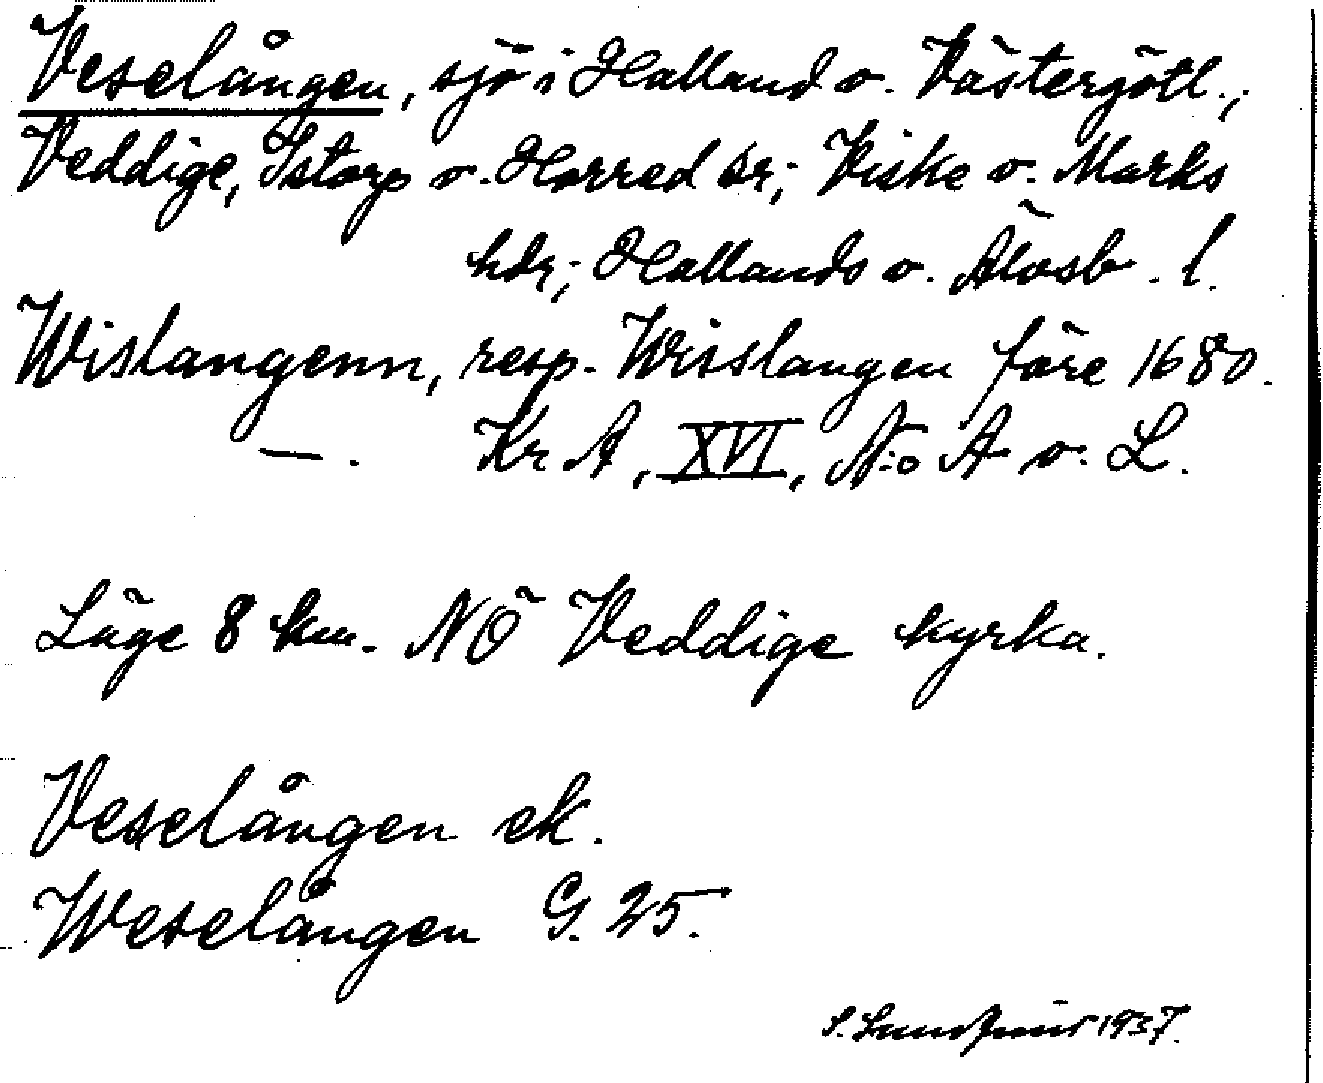 Veselången, sjö i Halland o. Västergötl.;
Veddige, Istorp o. Horred sr; Viske o. Marks
hdr; Hallands o. Älvsb. l.
Wislangenn, resp. Wisslangen före 1680.
—. Kr A, XVI, N:o A o. L.
Läge 8 km. NÖ Veddige kyrka.
Veselången ek.
Weselången G. 25.
S. 1937.